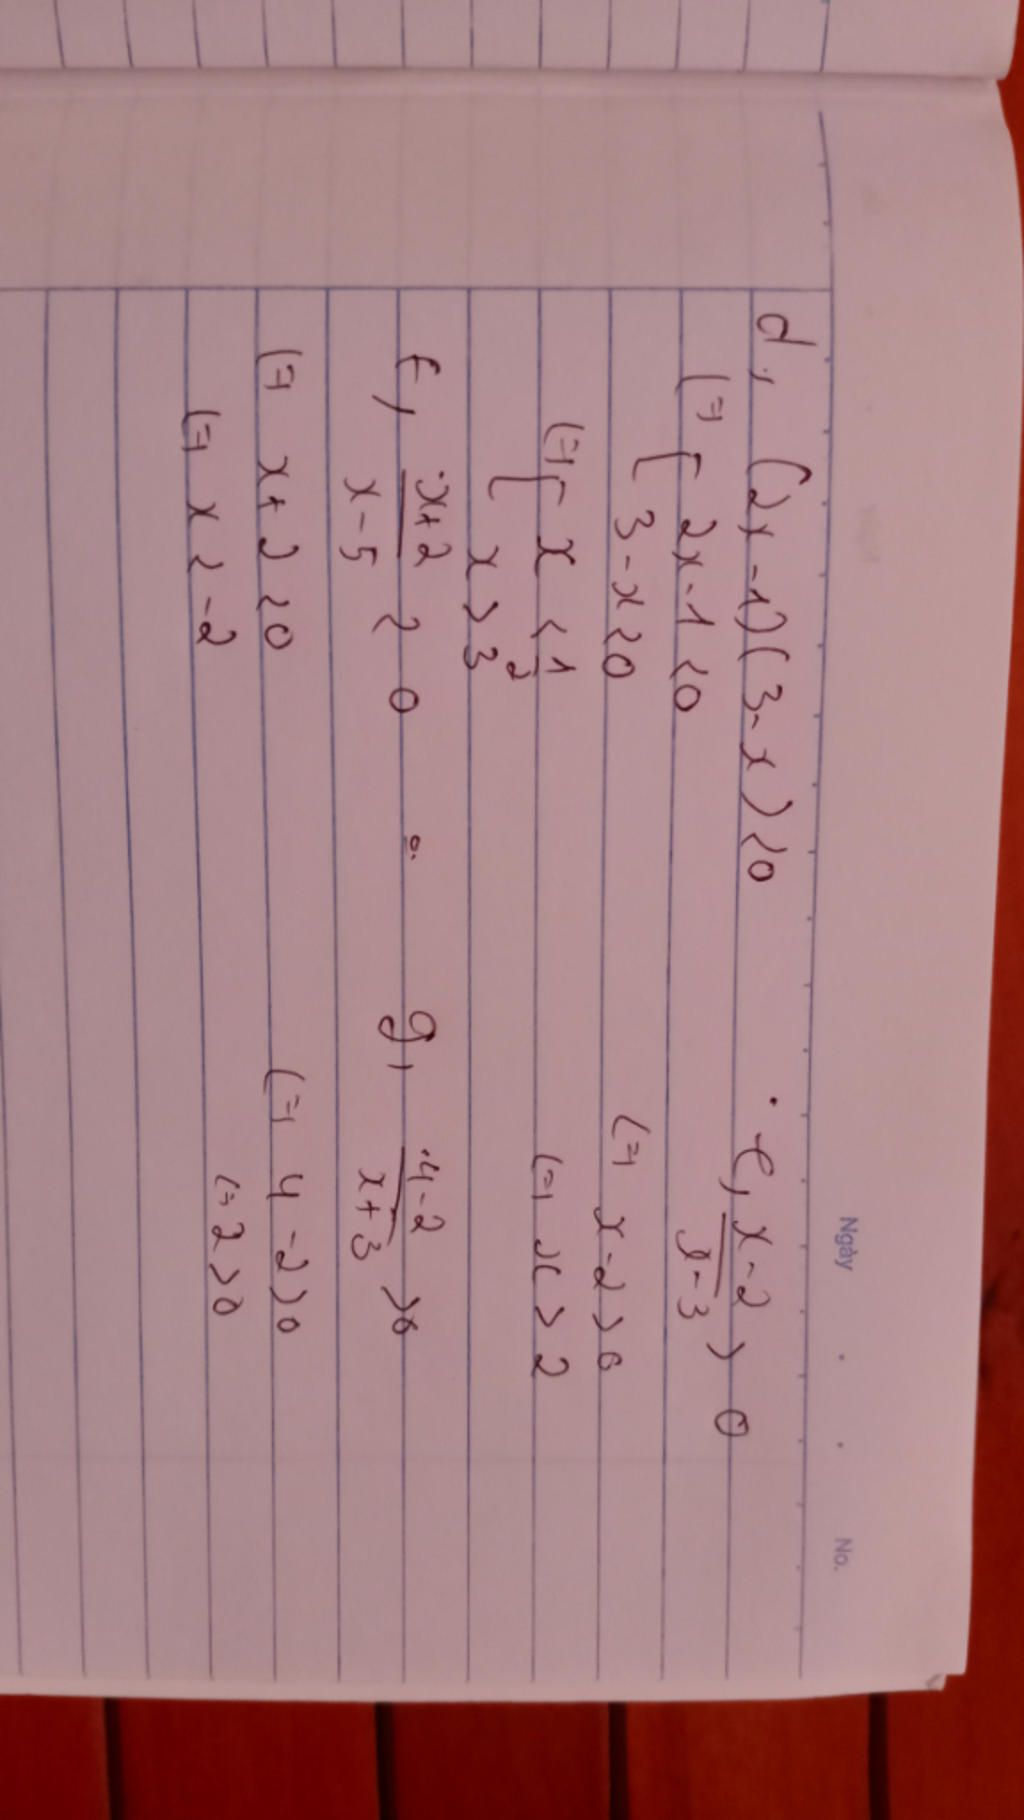 Ngày . . No.
d, (2x-1)(3-x) < 0
<=> [ 2x-1 < 0
3-x < 0
<=> [ x < 1/2
x > 3
e, x-2/x-3 > 0
<=> x-2 > 0
<=> x > 2
f, x+2/x-5 < 0
<=> x+2 < 0
<=> x < -2
g, 4-2/x+3 > 0
<=> 4-2 > 0
<=> 2 > 0